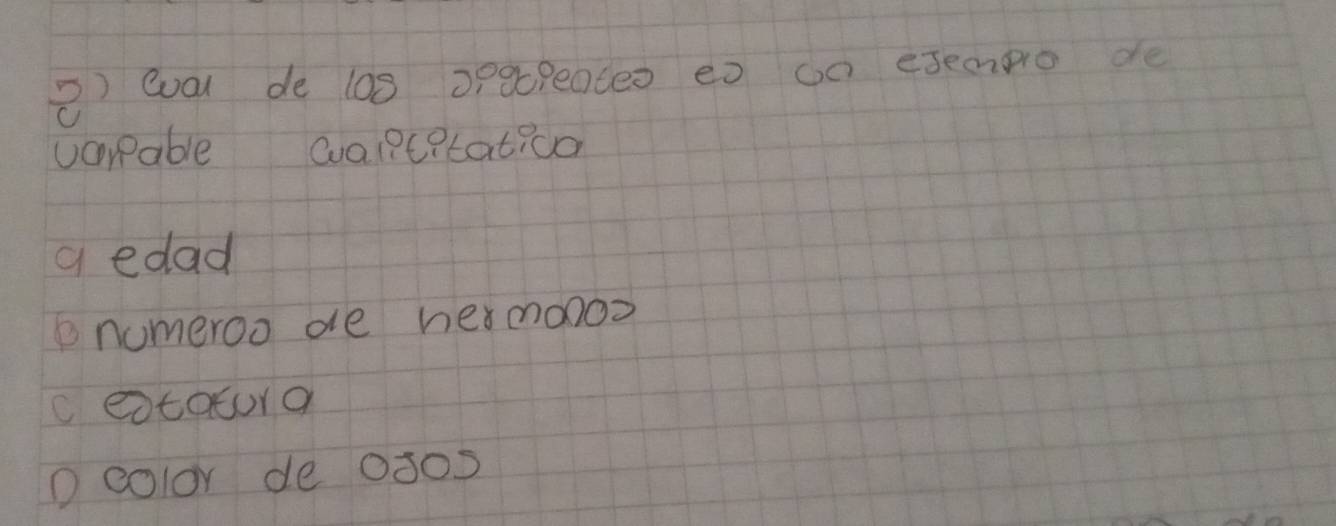 5) cual de los siguientes es un ejemplo de
variable cualititativa
a edad
b numeros de hermanos
c estatura
D color de ojos